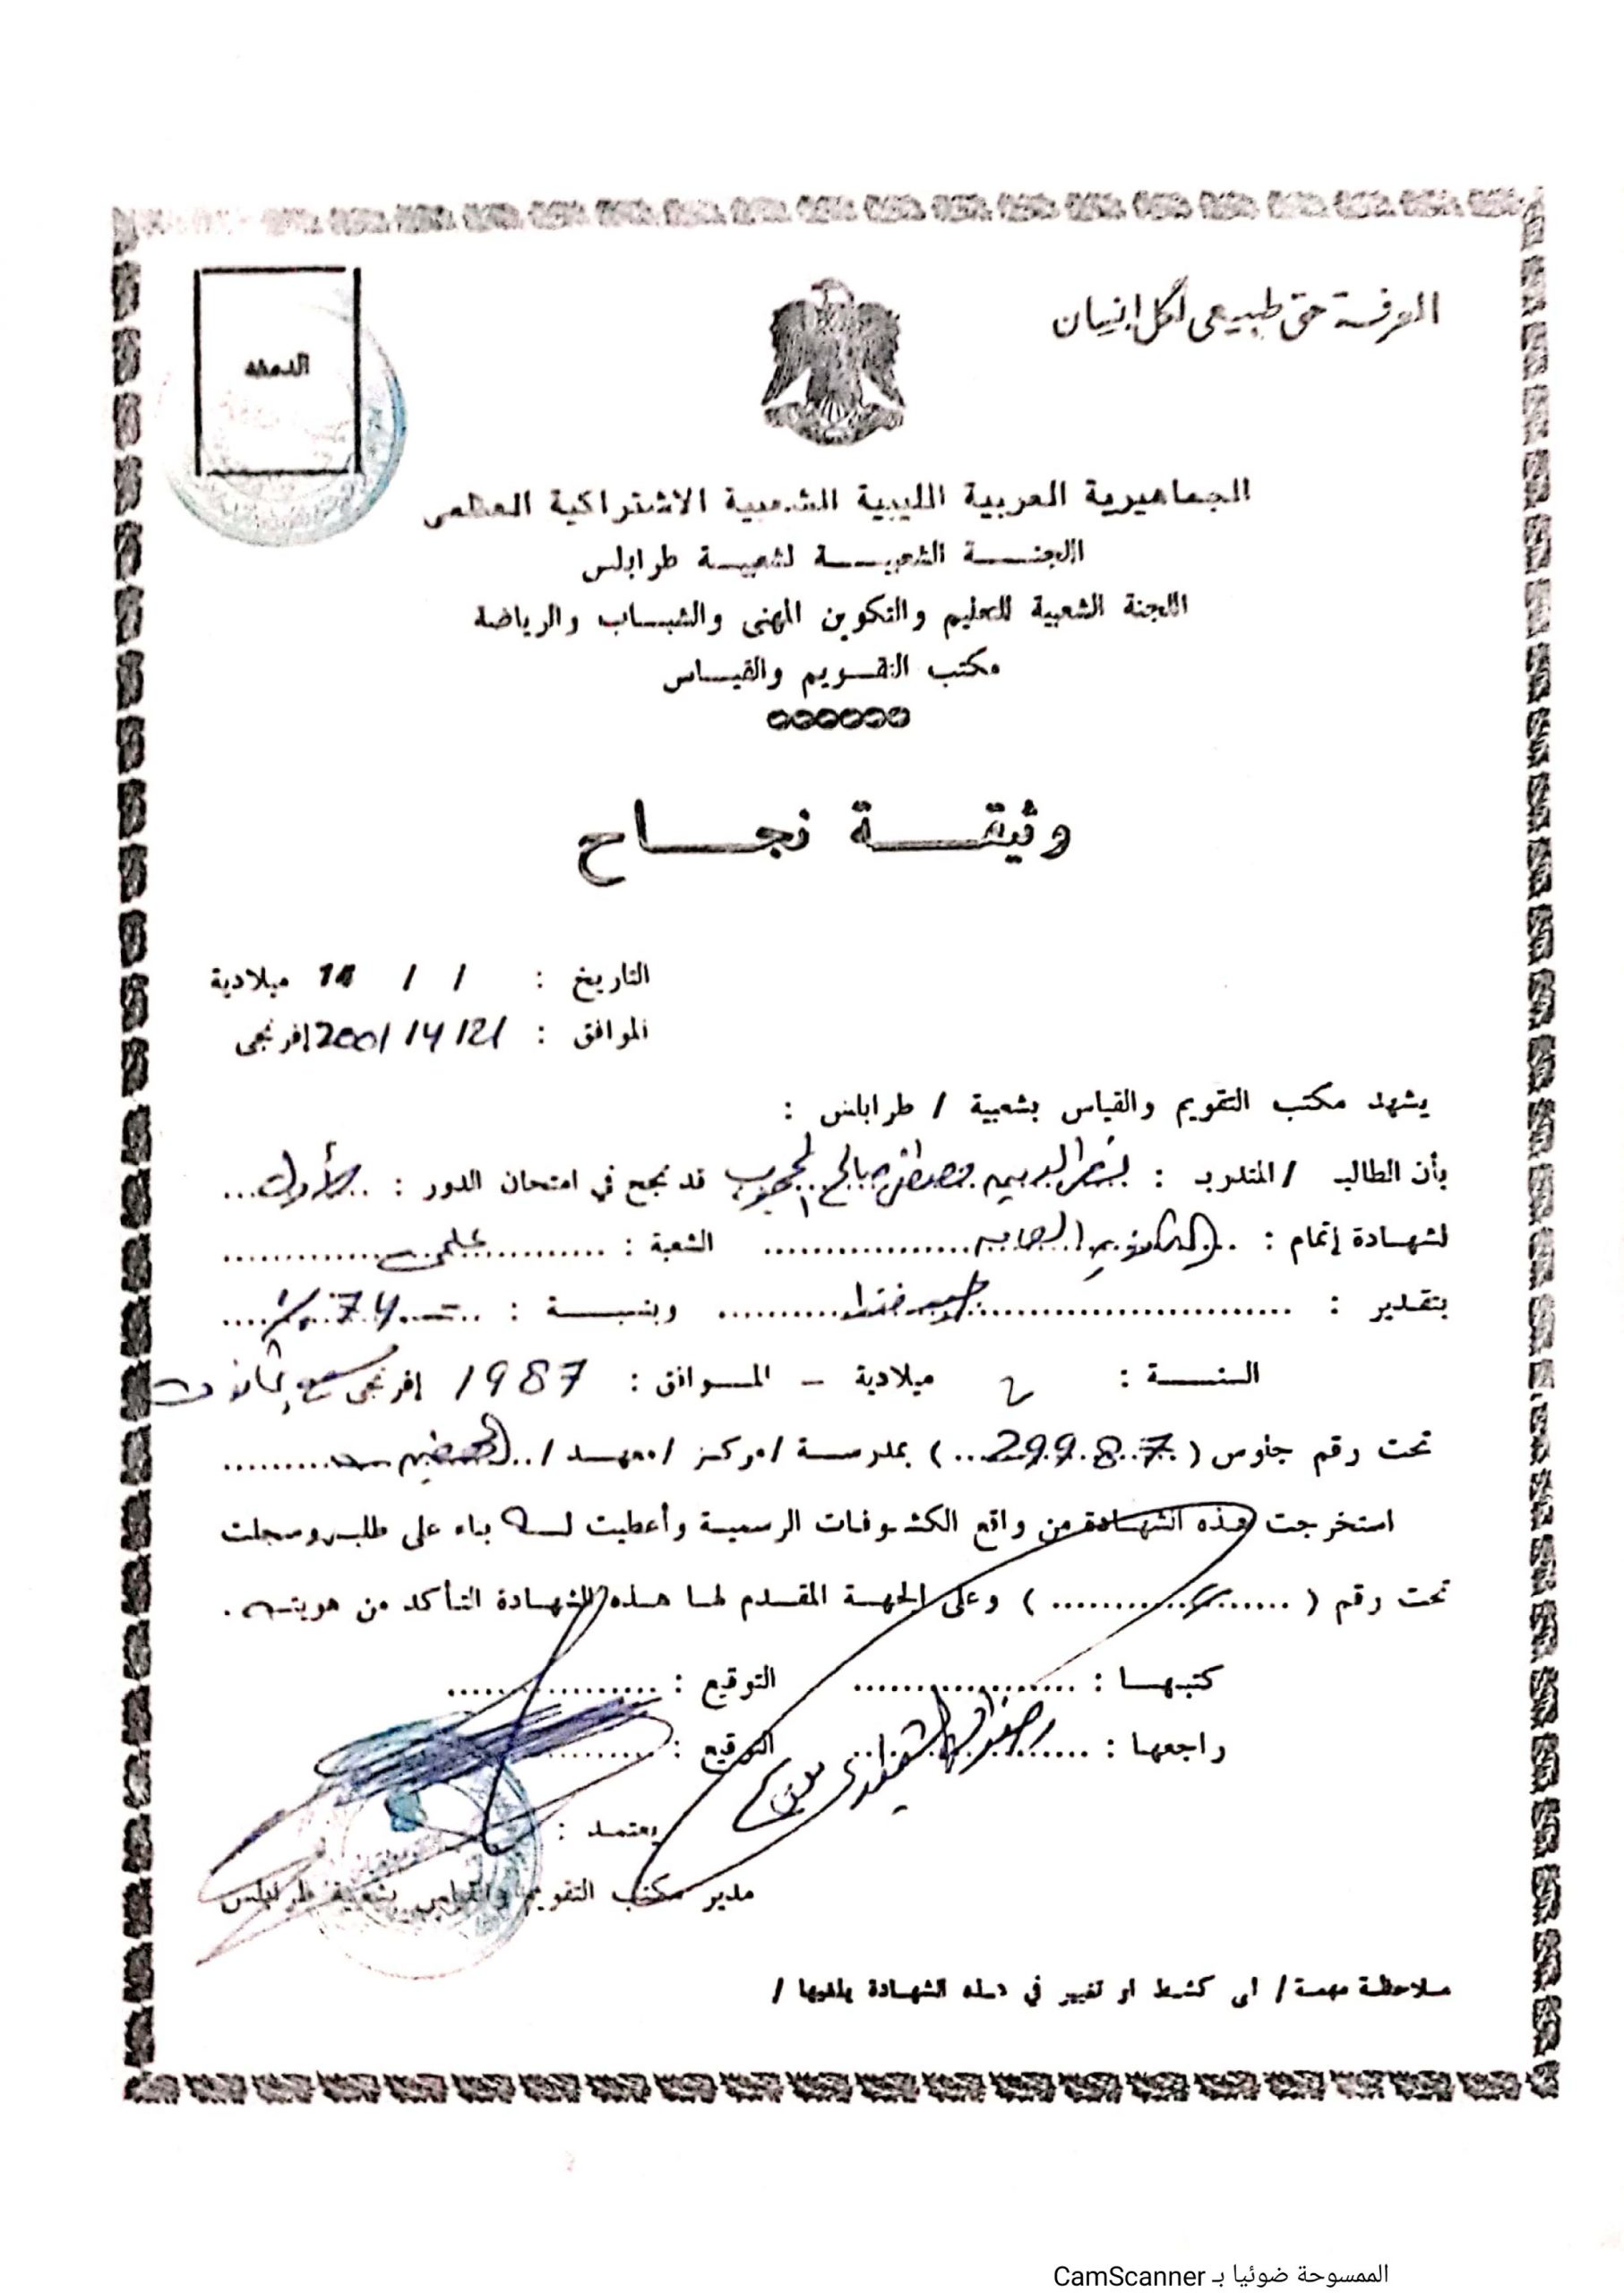 المعرفة حق طبيعي لكل إنسان
الدمغة
الجماهيرية العربية الليبية الشعبية الاشتراكية العظمى
اللجنــة الشعبيــة لشعبيــة طرابلس
اللجنة الشعبية للتعليم والتكوين المهنى والشباب والرياضة
مكتب التقــويم والقيــاس
وثيقــة نجــاح
التاريخ : / / ميلادية
الموافق : 21/ 4/ 2001 إفرنجى
يشهد مكتب التقويم والقياس بشعبية / طرابلس :
بأن الطالب / المتدرب : مصطفى قد نجح في امتحان الدور : الأول
لشهــادة إتمام : الثانوية العامة الشعبة : علمي
بتقـدير : جيد فقط وبنسبــة : 74 %
السنــة : ميلادية - المــوافق : 1987 إفرنجى سبع وثمانون
تحت رقم جلوس ( 29987 ) بمدرسـة / مركـز / معهـد /
استخرجت هذه الشهـادة من واقع الكشـوفـات الرسميـة وأعطيت لـه بناء على طلبه وسجلت
تحت رقم ( ) وعلى الجهـة المقـدم لهـا هـذه الشهـادة التـأكد من هويتـه .
كتبهـا : التوقيع :
راجعهـا : التوقيع :
يعتمـد :
مدير مكتب التقويم والقياس بشعبية طرابلس
مـلاحظـة مهمـة / اى كشـط او تغيير في هـذه الشهـادة يلغيها /
الممسوحة ضوئيا بـ CamScanner